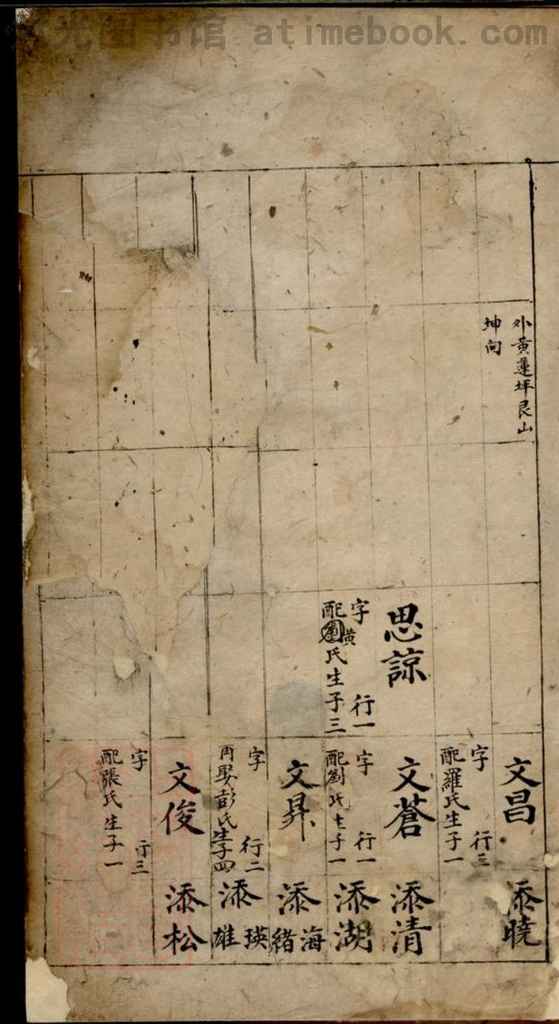 光图书馆 atimebook.com
外黃蓮坪艮山
坤向
思諒
字 行一
配黃氏生子三
文昌
字 行三
配羅氏生子一
文蒼
字 行一
配劉氏生子一
文昇
字 行二
再娶彭氏生子四
文俊
字 行三
配張氏生子一
添曉
添清
添湖
添海
緒
添瑛
雄
添松